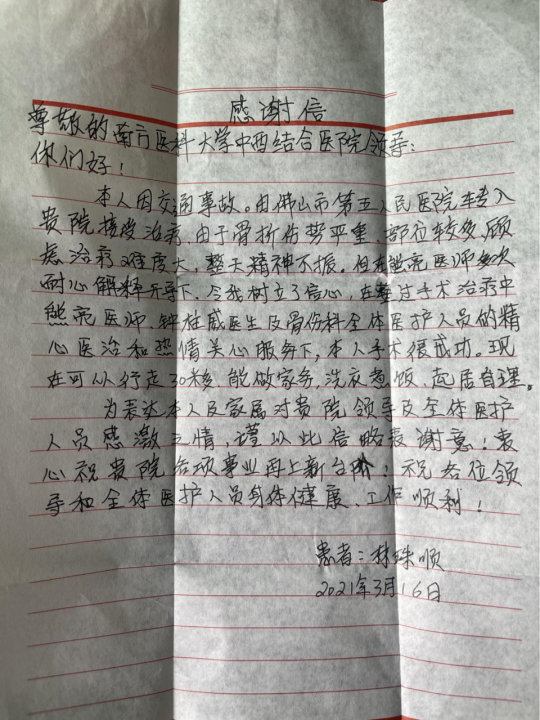 感谢信
尊敬的南方医科大学中西结合医院领导:
你们好!
本人因交通事故。由佛山市第五人民医院转入
贵院接受治疗。由于骨折伤势严重,部位较多,顾
虑治疗难度大,整天精神不振。但在熊亮医师多次
耐心解释开导下、令我树立了信心,在整过手术治疗中
熊亮医师、钟桂威医生及骨伤科全体医护人员的精
心医治和热情关心服务下,本人手术很成功。现
在可以行走30米多,能做家务,洗衣煮饭,起居自理。
为表达本人及家属对贵院领导及全体医护
人员感激之情,谨以此信略表谢意!衷
心祝贵院各项事业再上新台阶!祝各位领
导和全体医护人员身体健康、工作顺利!
患者:林珠顺
2021年3月16日